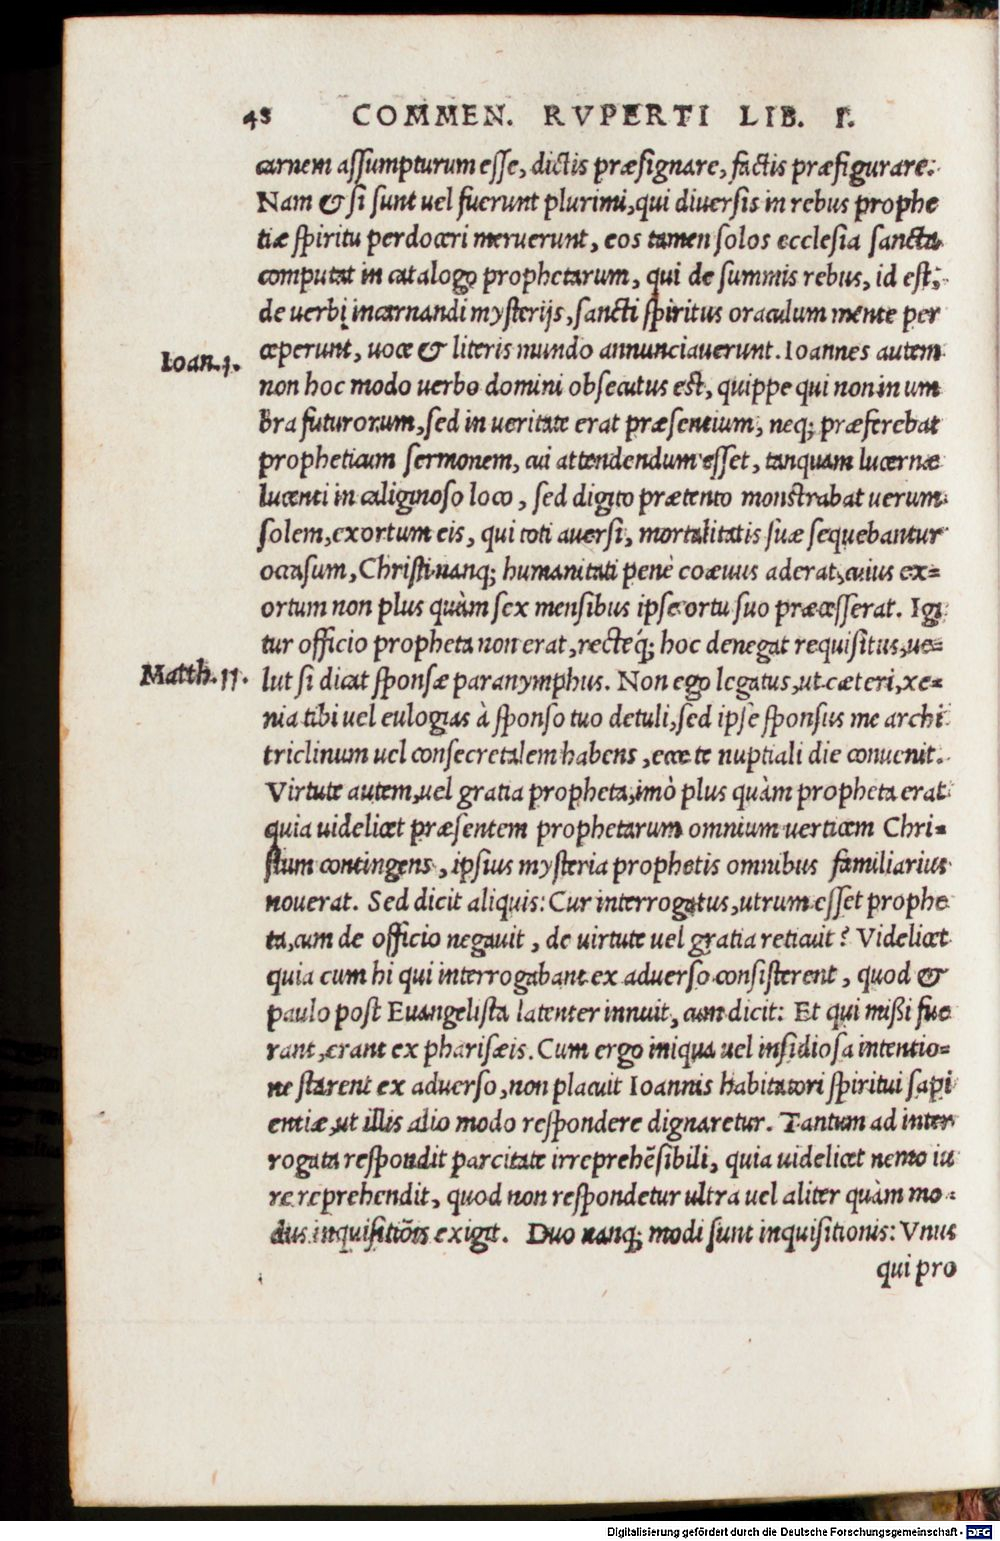 48 COMMEN. RVPERTI LIB. I.
carnem assumpturum esse, dictis præsignare, factis præfigurare.
Nam & si sunt uel fuerunt plurimi, qui diuersis in rebus prophe
tiæ spiritu perdoceri meruerunt, eos tamen solos ecclesia sancta
computat in catalogo prophetarum, qui de summis rebus, id est,
de uerbi incarnandi mysterijs, sancti spiritus oraculum mente per
ceperunt, uoce & literis mundo annunciauerunt. Ioannes autem
Ioan. 1.
non hoc modo uerbo domini obsecutus est, quippe qui non in um
bra futurorum, sed in ueritate erat præsentium, neq; præferebat
propheticum sermonem, cui attendendum esset, tanquam lucernæ
lucenti in caliginoso loco, sed digito prætento monstrabat uerum
solem, exortum eis, qui toti auersi, mortalitatis suæ sequebantur
occasum, Christi nanq; humanitati penè coæuus aderat, cuius ex=
ortum non plus quàm sex mensibus ipse ortu suo præcesserat. Igi
tur officio propheta non erat, recteq́; hoc denegat requisitus, ue=
Matth. 11.
lut si dicat sponsæ paranymphus. Non ego legatus, ut cæteri, xe=
nia tibi uel eulogias à sponso tuo detuli, sed ipse sponsus me archi
triclinum uel consecretalem habens, ecce te nuptiali die conuenit.
Virtute autem, uel gratia propheta, imò plus quàm propheta erat
quia uidelicet præsentem prophetarum omnium uerticem Chri=
stum contingens, ipsius mysteria prophetis omnibus familiarius
nouerat. Sed dicit aliquis: Cur interrogatus, utrum esset prophe
ta, cum de officio negauit, de uirtute uel gratia reticuit? Videlicet
quia cum hi qui interrogabant ex aduerso consisterent, quod &
paulo post Euangelista latenter innuit, cum dicit: Et qui mißi fue
rant, erant ex pharisæis. Cum ergo iniqua uel insidiosa intentio=
ne starent ex aduerso, non placuit Ioannis habitatori spiritui sapi
entiæ, ut illis alio modo respondere dignaretur. Tantum ad inter
rogata respondit parcitate irreprehēsibili, quia uidelicet nemo iu
re reprehendit, quod non respondetur ultra uel aliter quàm mo=
dus inquisitiōis exigit. Duo nanq; modi sunt inquisitionis: Vnus
qui pro
Digitalisierung gefördert durch die Deutsche Forschungsgemeinschaft - DFG